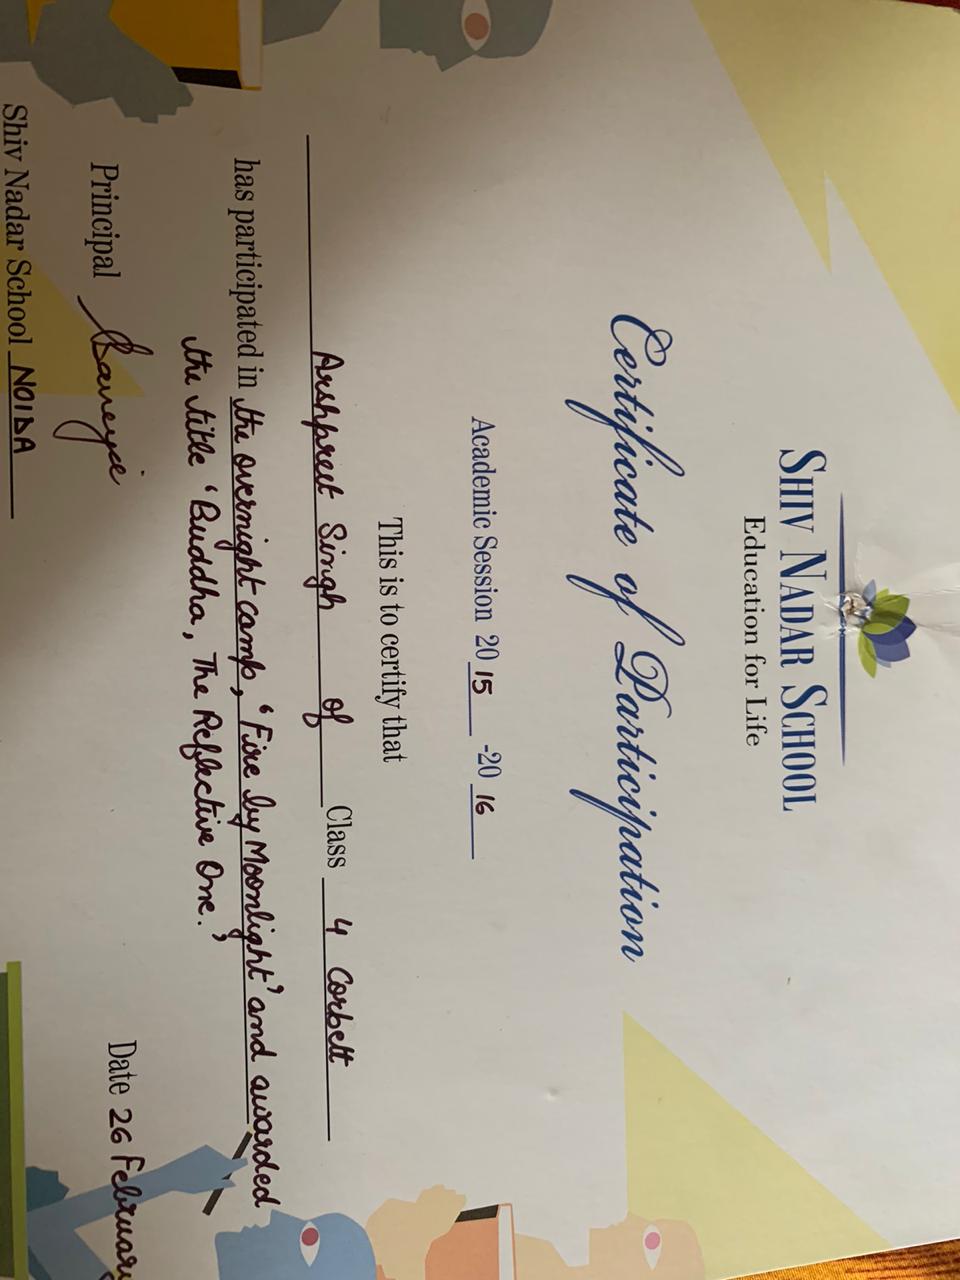 SHIV NADAR SCHOOL
Education for Life
Certificate of Participation
Academic Session 2015 -2016
This is to certify that
Arshpreet Singh of Class 4 Corbett
has participated in the overnight camp, 'Fire by Moonlight' and awarded
the title 'Buddha, The Reflective One.'
Principal
Date 26 February
Shiv Nadar School NOIDA